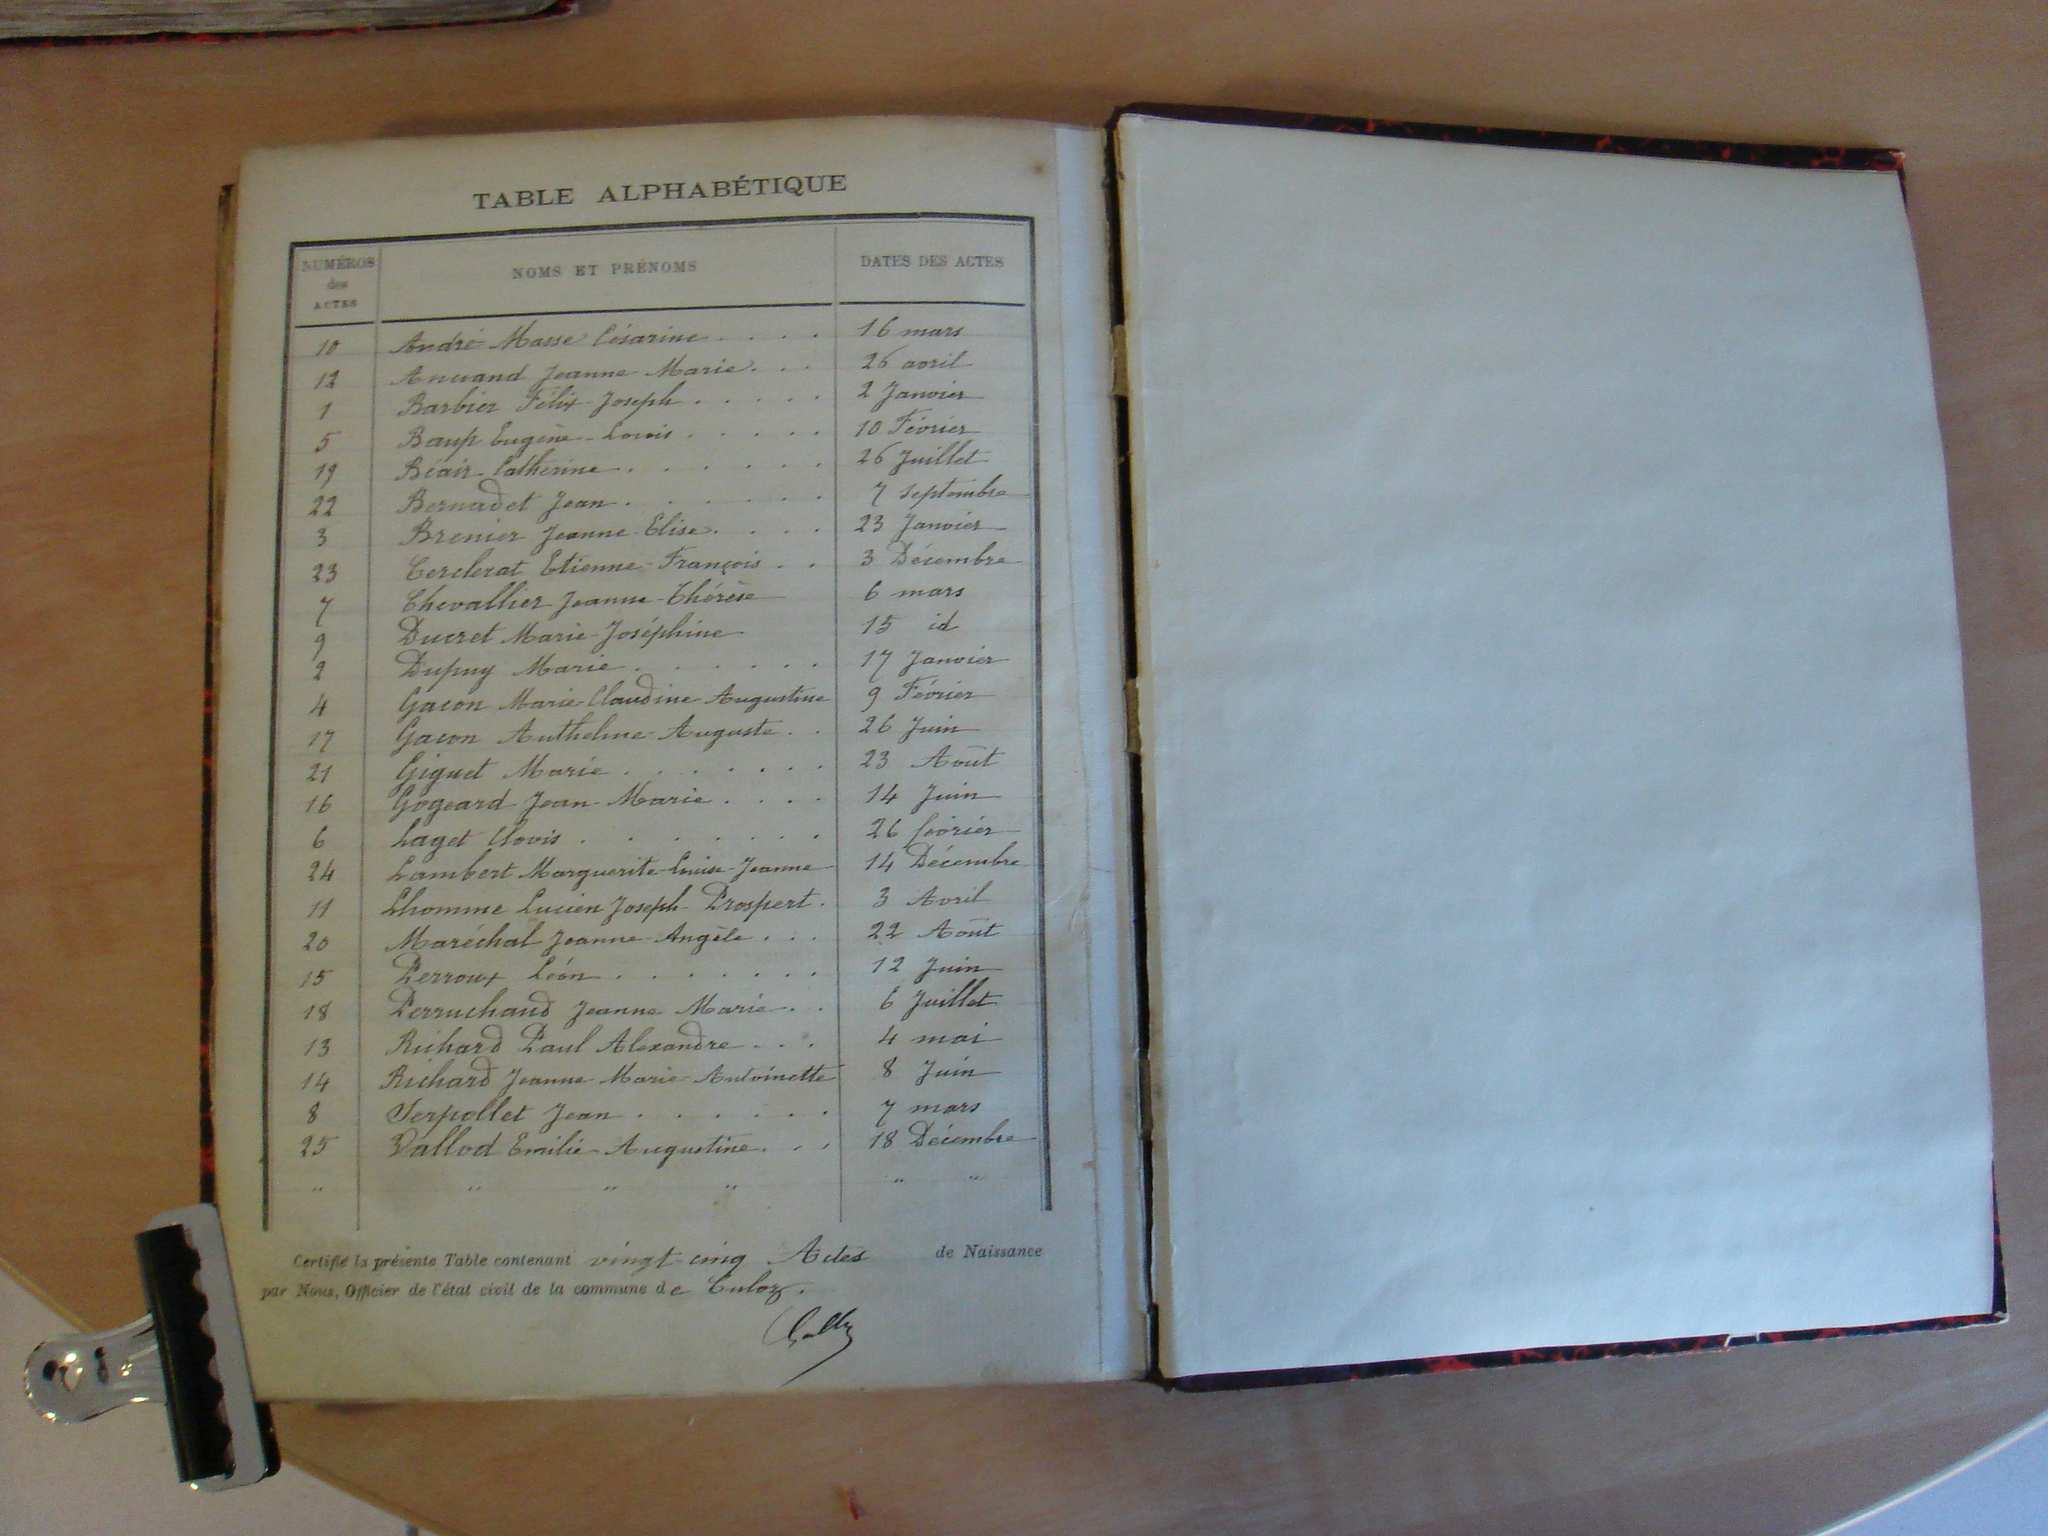 TABLE ALPHABÉTIQUE
NUMÉROS des ACTES NOMS ET PRÉNOMS DATES DES ACTES
10 André Masse Césarine . . . . 16 mars
12 Anuand Jeanne Marie . . . 26 avril
1 Barbier Félix Joseph . . . . . 2 Janvier
5 Baup Eugène Louis . . . . . 10 Février
19 Béair Catherine . . . . . . 26 Juillet
22 Bernadet Jean . . . . . . 7 septembre
3 Brenier Jeanne Elise . . . . 23 Janvier
23 Cerclerat Etienne François . . 3 Décembre
7 Chevallier Jeanne Thérèse 6 mars
9 Ducret Marie Joséphine 15 id
2 Dupuy Marie . . . . . . 17 Janvier
4 Gacon Marie Claudine Augustine 9 Février
17 Gacon Anthelme Auguste . . 26 Juin
21 Giguet Marie . . . . . . . 23 Août
16 Gogeard Jean Marie . . . . 14 Juin
6 Laget Clovis . . . . . . . 26 février
24 Lambert Marguerite Louise Jeanne 14 Décembre
11 Lhomme Lucien Joseph Prospert . 3 Avril
20 Maréchal Jeanne Angèle . . . 22 Août
15 Perroux Léon . . . . . . . 12 Juin
18 Perruchaud Jeanne Marie . . 6 Juillet
13 Richard Paul Alexandre . . . 4 mai
14 Richard Jeanne Marie Antoinette 8 Juin
8 Serpollet Jean . . . . . . 7 mars
25 Vallod Emilie Augustine . . . 18 Décembre
" " " " " "
Certifié la présente Table contenant vingt-cinq Actes de Naissance
par Nous, Officier de l'état civil de la commune de Culoz.